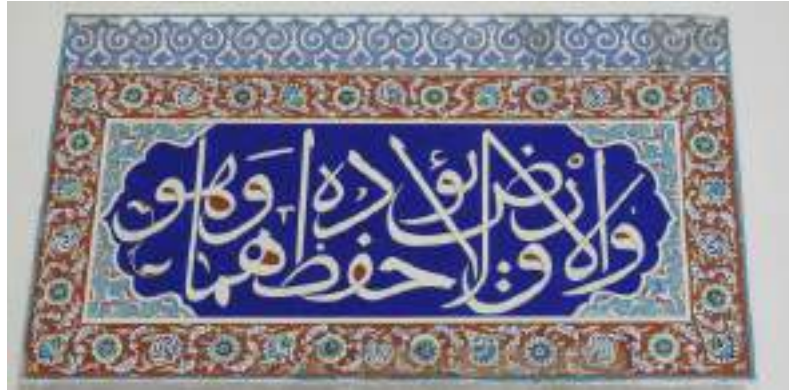 وَالْاَرْضَ وَلَا يَؤُدُهُ حِفْظُهُمَا وَهُوَ